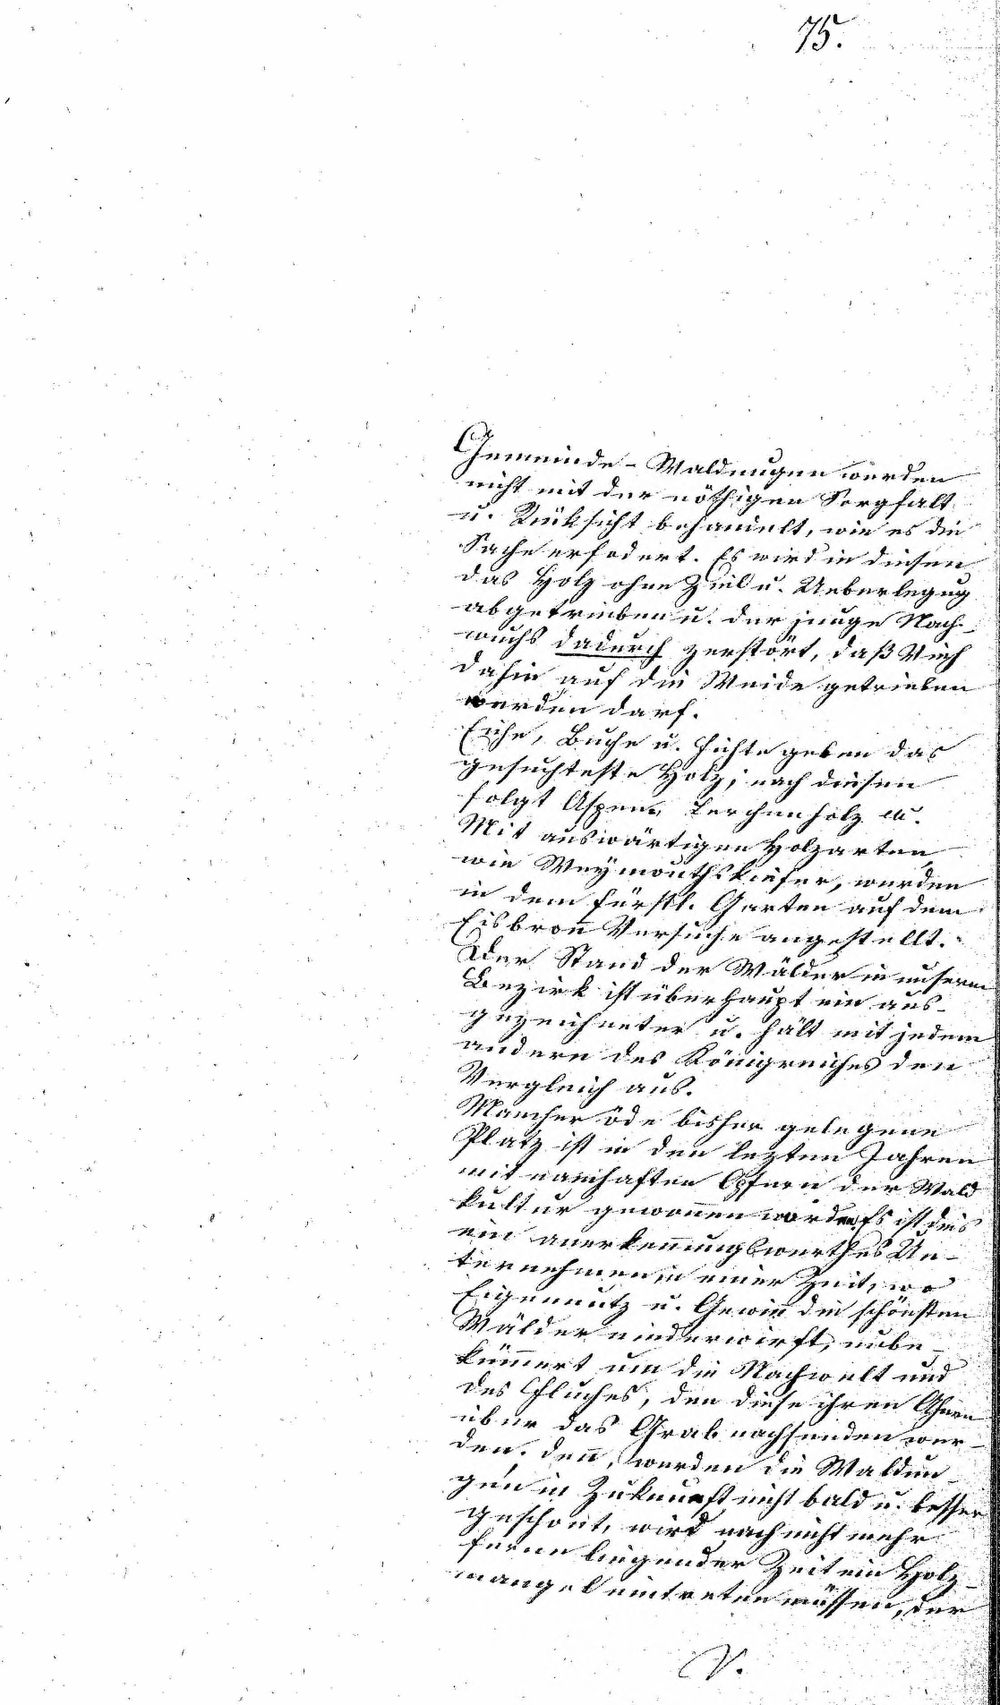 75.
Gemeinde-Waldungen werden
nicht mit der nöthigen Sorgfalt
u. Rüksicht behandelt, wie es die
Sache erfodert. Es wird in diesen
das Holz ohne Ziel u. Ueberlegug
abgetrieben u. der junge Nach-
wuchs dadurch zerstört, daß Vieh
dahin auf die Weide getrieben
werden darf.
Eiche, Buche u. Fichte geben das
gesuchteste Holz; nach diesen
folgt Aspen, Lerchenholz
Mit auswärtigen Holzarten,
wie Weymouthskiefer, wurden
in dem fürstl. Garten auf dem
Eisbron̄ Versuche angestellt.
Der Stand der Wälder in unserm
Bezirk ist überhaupt ein aus-
gezeichneter u. hält mit jedem
andern des Königreiches den
Vergleich aus.
Mancher öde bisher gelegene
Platz ist in den lezten Jahren
mit namhaften Opfern der Wald
kultur gewonnen worden. Es ist dies
ein anerken̄ungswerthes Un-
ternehmen in einer Zeit, wo
Eigennutz u. Gewin̄ die schönsten
Wälder niederwirft, unbe-
küm̄ert um die Nachwelt und
des Fluches, den diese ihren Ahnen
über das Grab nachsenden wer-
den. Den̄, werden die Waldun-
gen in Zukunft nicht bald u. besser
geschont, wird nach nicht mehr
ferne liegender Zeit ein Holz-
mangel eintreten müssen, der
V.